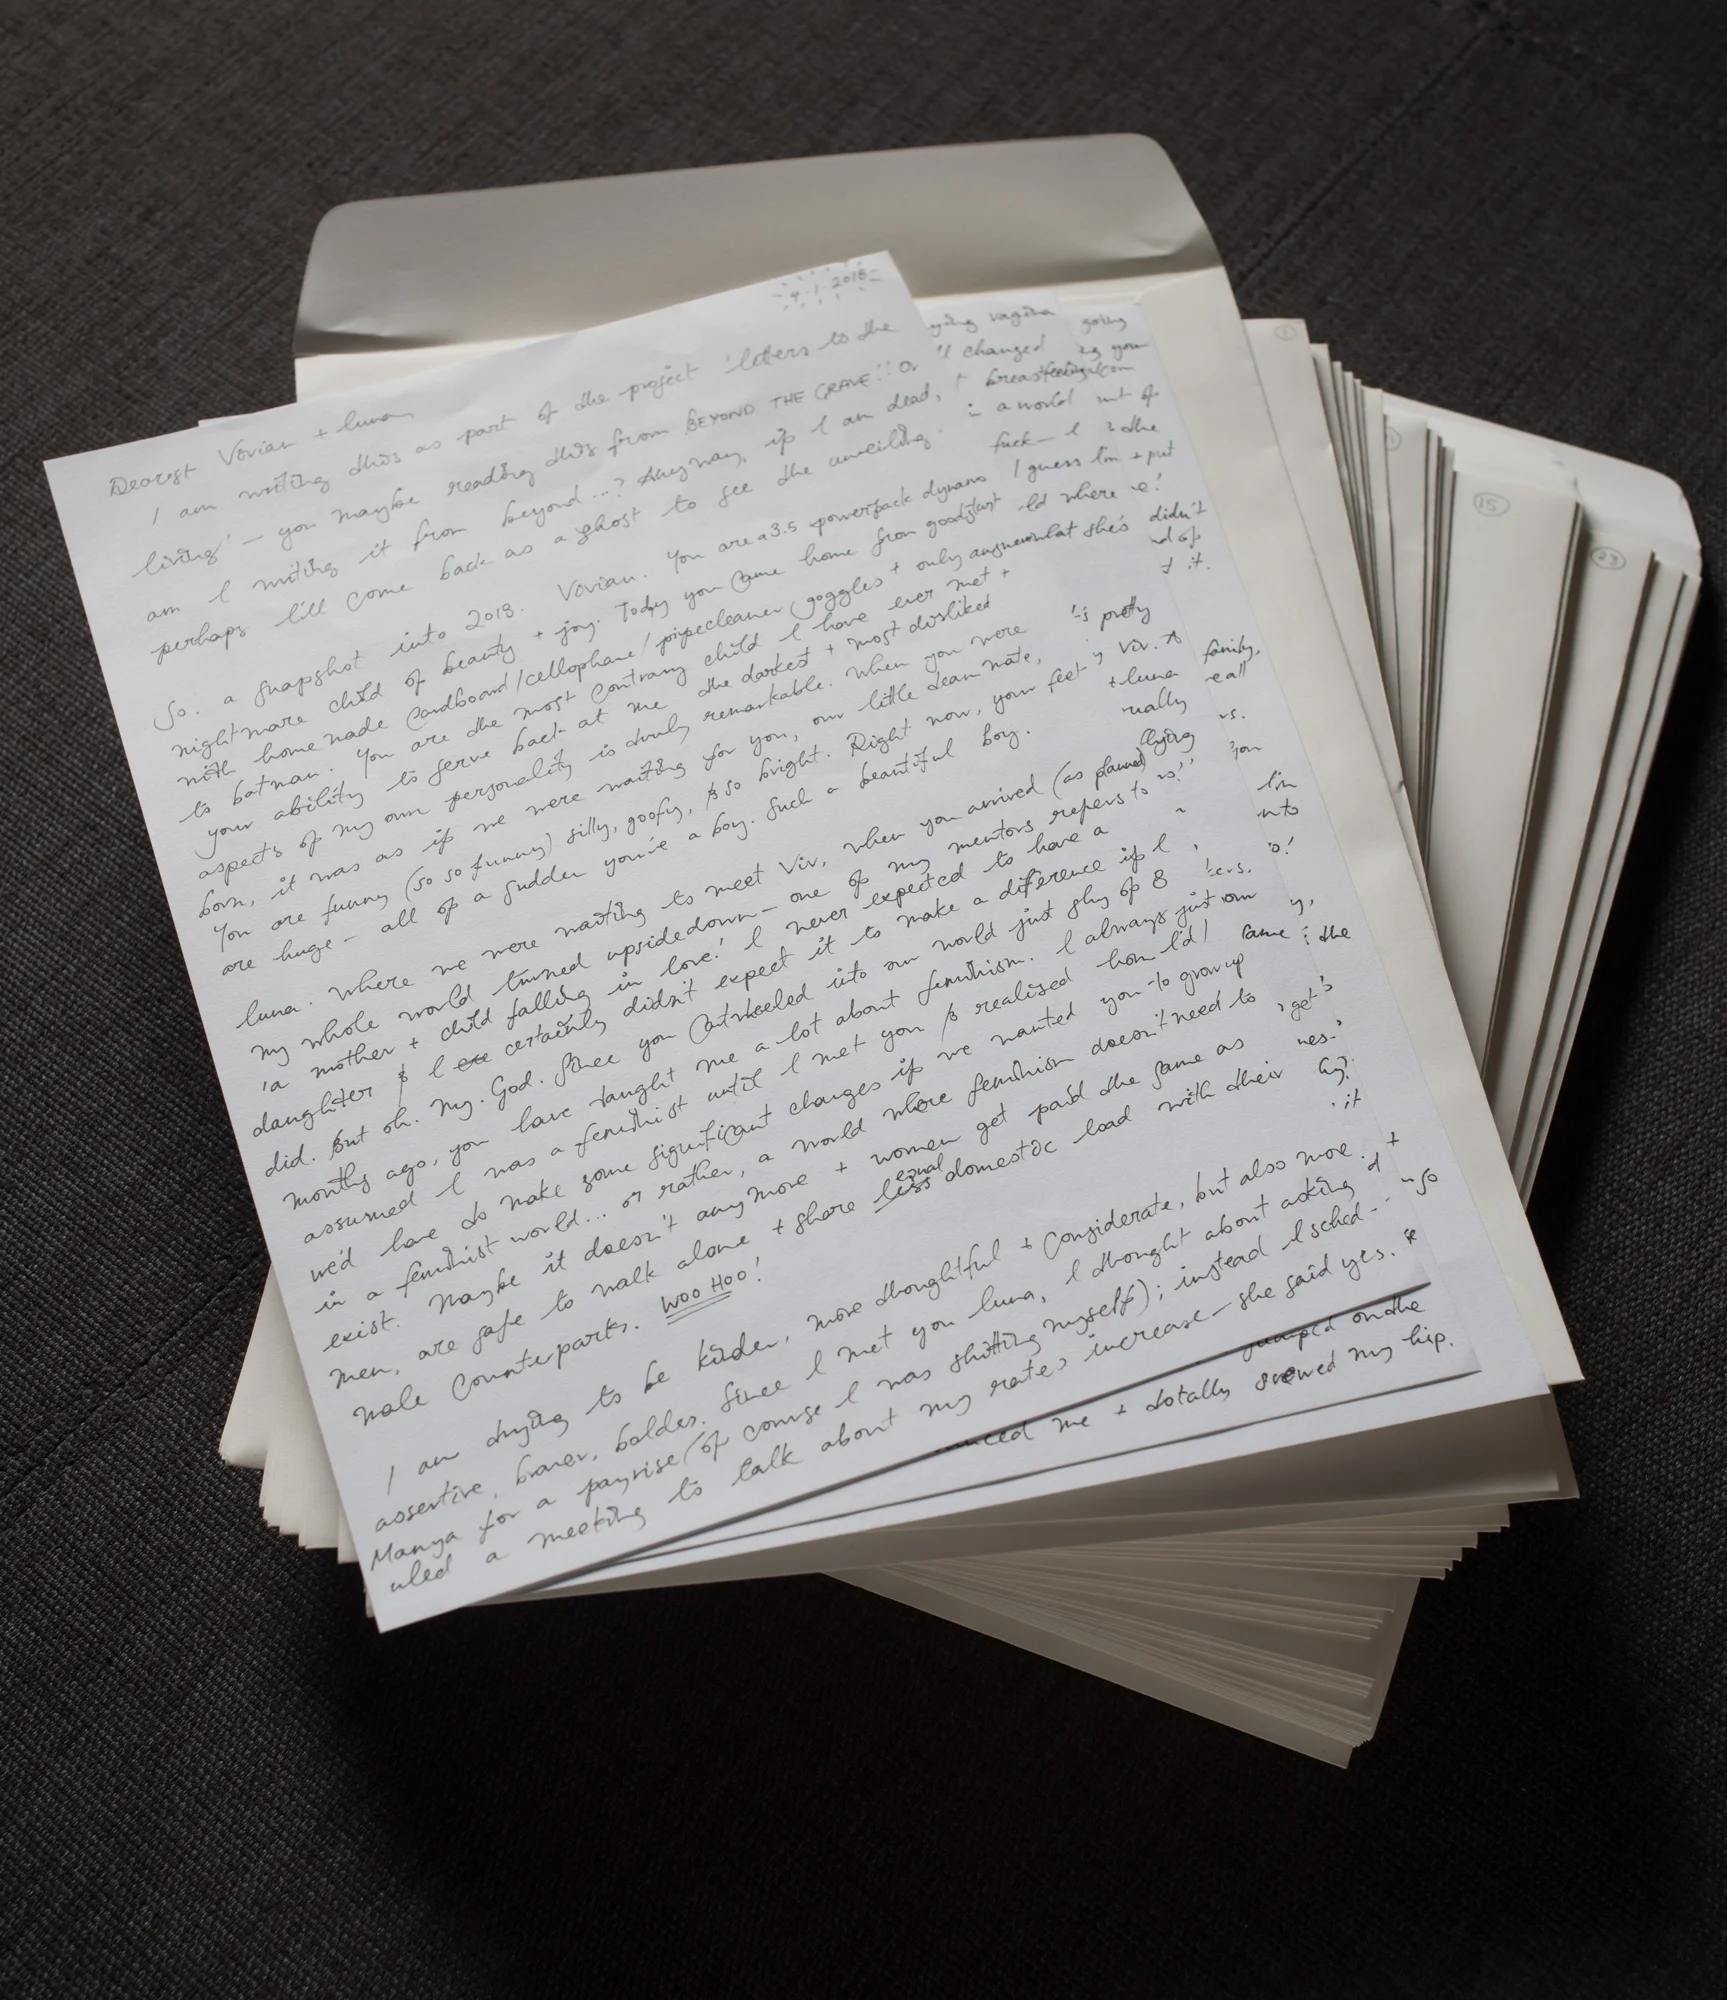 4.1.2018
Dearest Vivian + luna,
I am writing this as part of the project 'letters to the
living' – you maybe reading this from BEYOND THE GRAVE!! Or
am I writing it from beyond...? Anyway, if I am dead,
perhaps I'll come back as a ghost to see the unveiling.
So. a snapshot into 2018. Vivian. You are a 3.5 powerpack dynamo
nightmare child of beauty + joy. Today you came home from goodstart
with homemade cardboard/cellophane/pipecleaner goggles + only answer
to batman. You are the most contrary child I have ever met +
your ability to serve back at me the darkest + most disliked
aspects of my own personality is truly remarkable. When you were
born, it was as if we were waiting for you, our little team mate,
You are funny (so so funny) silly, goofy, & so bright. Right now, your feet
are huge – all of a sudden you're a boy. Such a beautiful boy.
luna. Where we were waiting to meet Viv, when you arrived (as planned)
my whole world turned upside down – one of my mentors refers to
'a mother + child falling in love! I never expected to have a
daughter & I certainly didn't expect it to make a difference if I
did. But oh. My. God. Since you cartwheeled into our world just shy of 8
months ago, you have taught me a lot about feminism. I always just
assumed I was a feminist until I met you & realised how I'd/
we'd have to make some significant changes if we wanted you to grow up
in a feminist world... or rather, a world where feminism doesn't need to
exist. Maybe it doesn't anymore + women get paid the same as
men, are safe to walk alone + share less equal domestic load with their
male counterparts. WOO HOO!
I am trying to be kinder, more thoughtful + considerate, but also more
assertive, braver, bolder. Since I met you luna, I thought about asking
Manya for a payrise (of course I was shitting myself); instead I sched-
uled a meeting to talk about my rates increase – she said yes.
vagina going
changed you
breastfeeding
in a world out of
fuck – I the
I guess I'm + put
where
what she's didn't
it.
pretty
Viv.
+ luna family,
all
you
I'm
into
some the
get
it
jumped on the
me + totally screwed my hip.
1
15
23